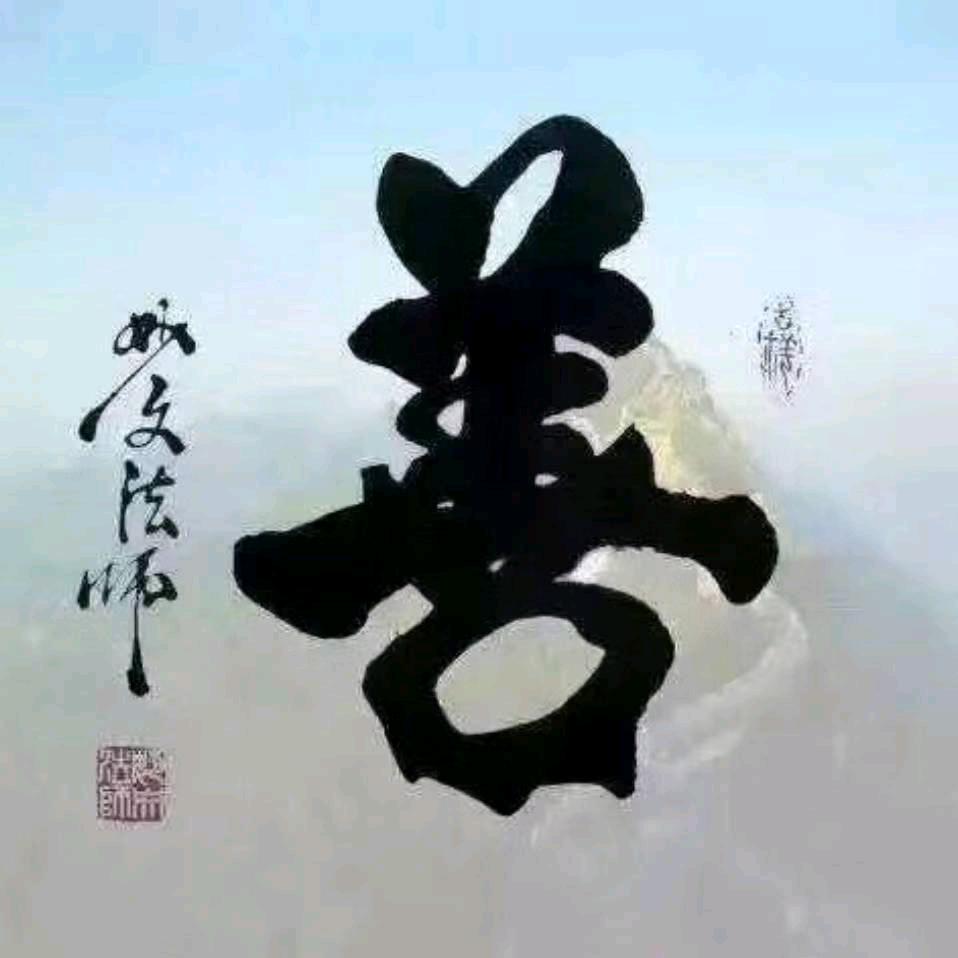 善
妙文法师